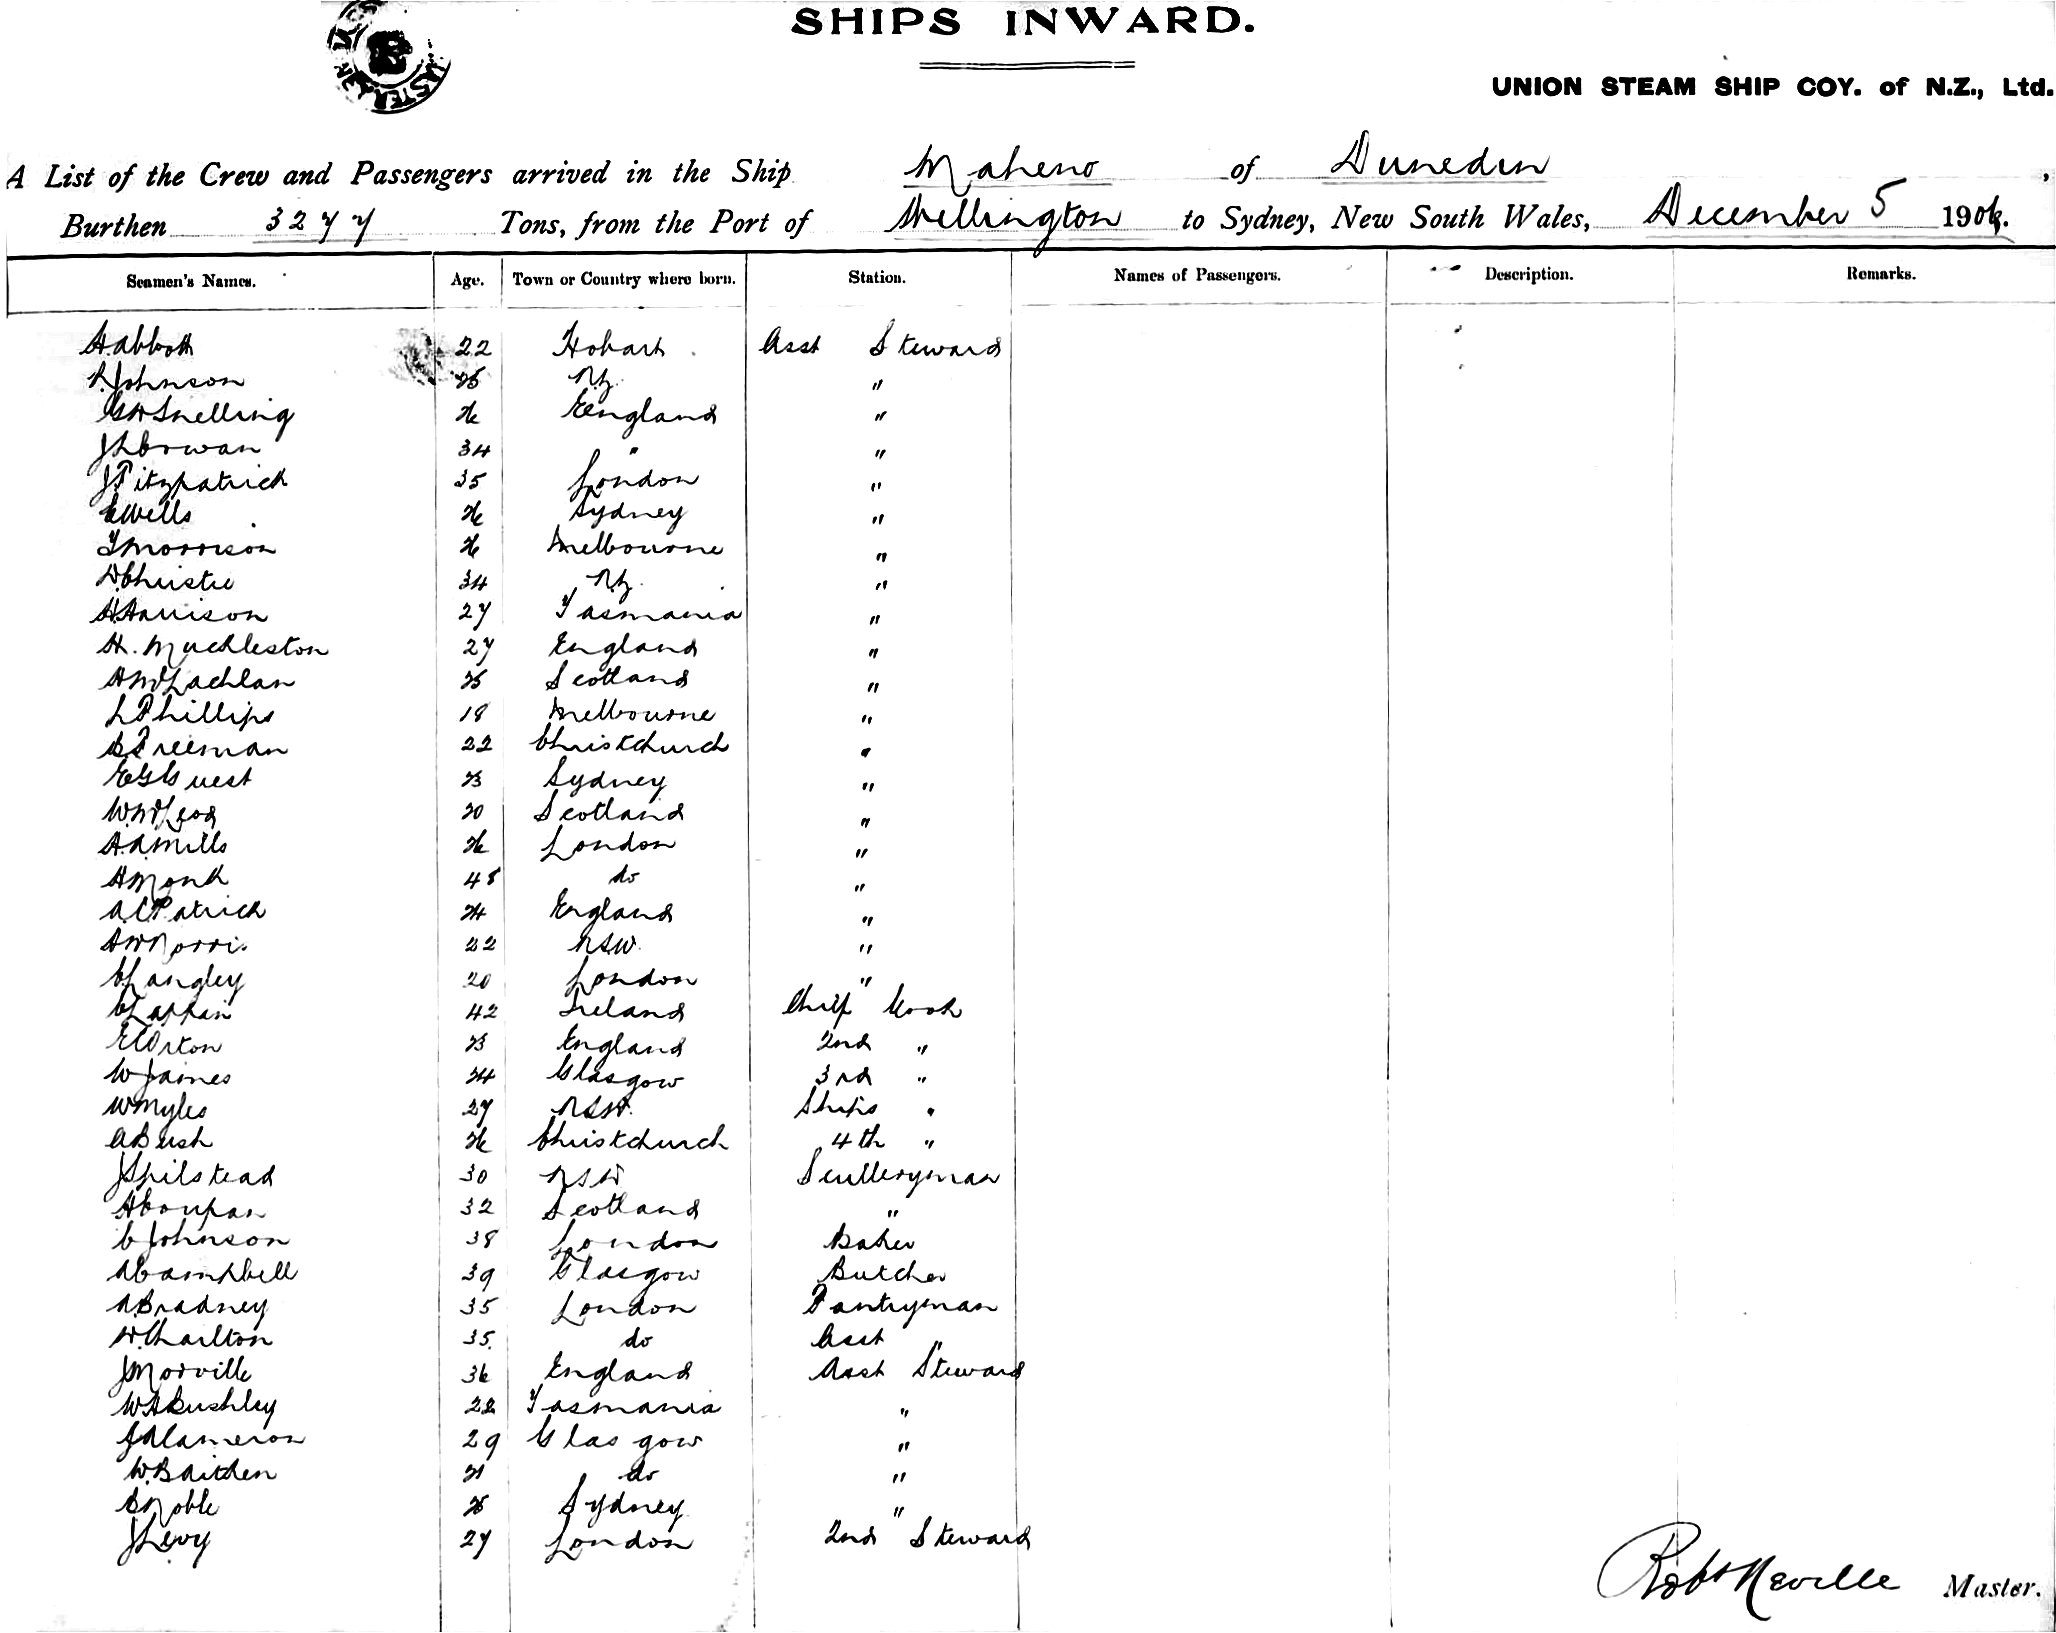 SHIPS INWARD.
UNION STEAM SHIP COY. of N.Z., Ltd.
A List of the Crew and Passengers arrived in the Ship Maheno of Dunedin,
Burthen 3277 Tons, from the Port of Wellington to Sydney, New South Wales, December 5 1906.
Seamen's Names. Age. Town or Country where born. Station. Names of Passengers. Description. Remarks.
H Abbott 22 Hobart Asst Steward
R Johnson 25 NZ "
G W Snelling 26 England "
J L Cowan 34 " "
J Fitzpatrick 35 London "
E Wells 26 Sydney "
T Morrison 26 Melbourne "
D Christie 34 NZ. "
H Harrison 27 Tasmania "
H. Muckleston 27 England "
A McLachlan 25 Scotland "
L Phillips 18 Melbourne "
B Freeman 22 Christchurch "
E G Guest 23 Sydney "
W McLeod 20 Scotland "
H.A. Mills 26 London "
H Monk 48 do "
A C Patrick 24 England "
A W Norris 22 NSW. "
C Langley 20 London "
C Lappin 42 Ireland Chief Cook
E C Orton 23 England 2nd "
W James 24 Glasgow 3rd "
W Myles 27 NSW. Ships "
A Bush 26 Christchurch 4th "
J Spilstead 30 NSW Sculleryman
A Coupar 32 Scotland "
C Johnson 38 London Baker
A Campbell 39 Glasgow Butcher
A Bradney 35 London Pantryman
W Charlton 35. do Asst "
J Morville 36 England Asst Steward
W A Bushley 22 Tasmania "
J A Cameron 29 Glasgow "
W. B Aitken 21 do "
B Noble 25 Sydney "
J Levy 27 London 2nd Steward
Robt Neville Master.